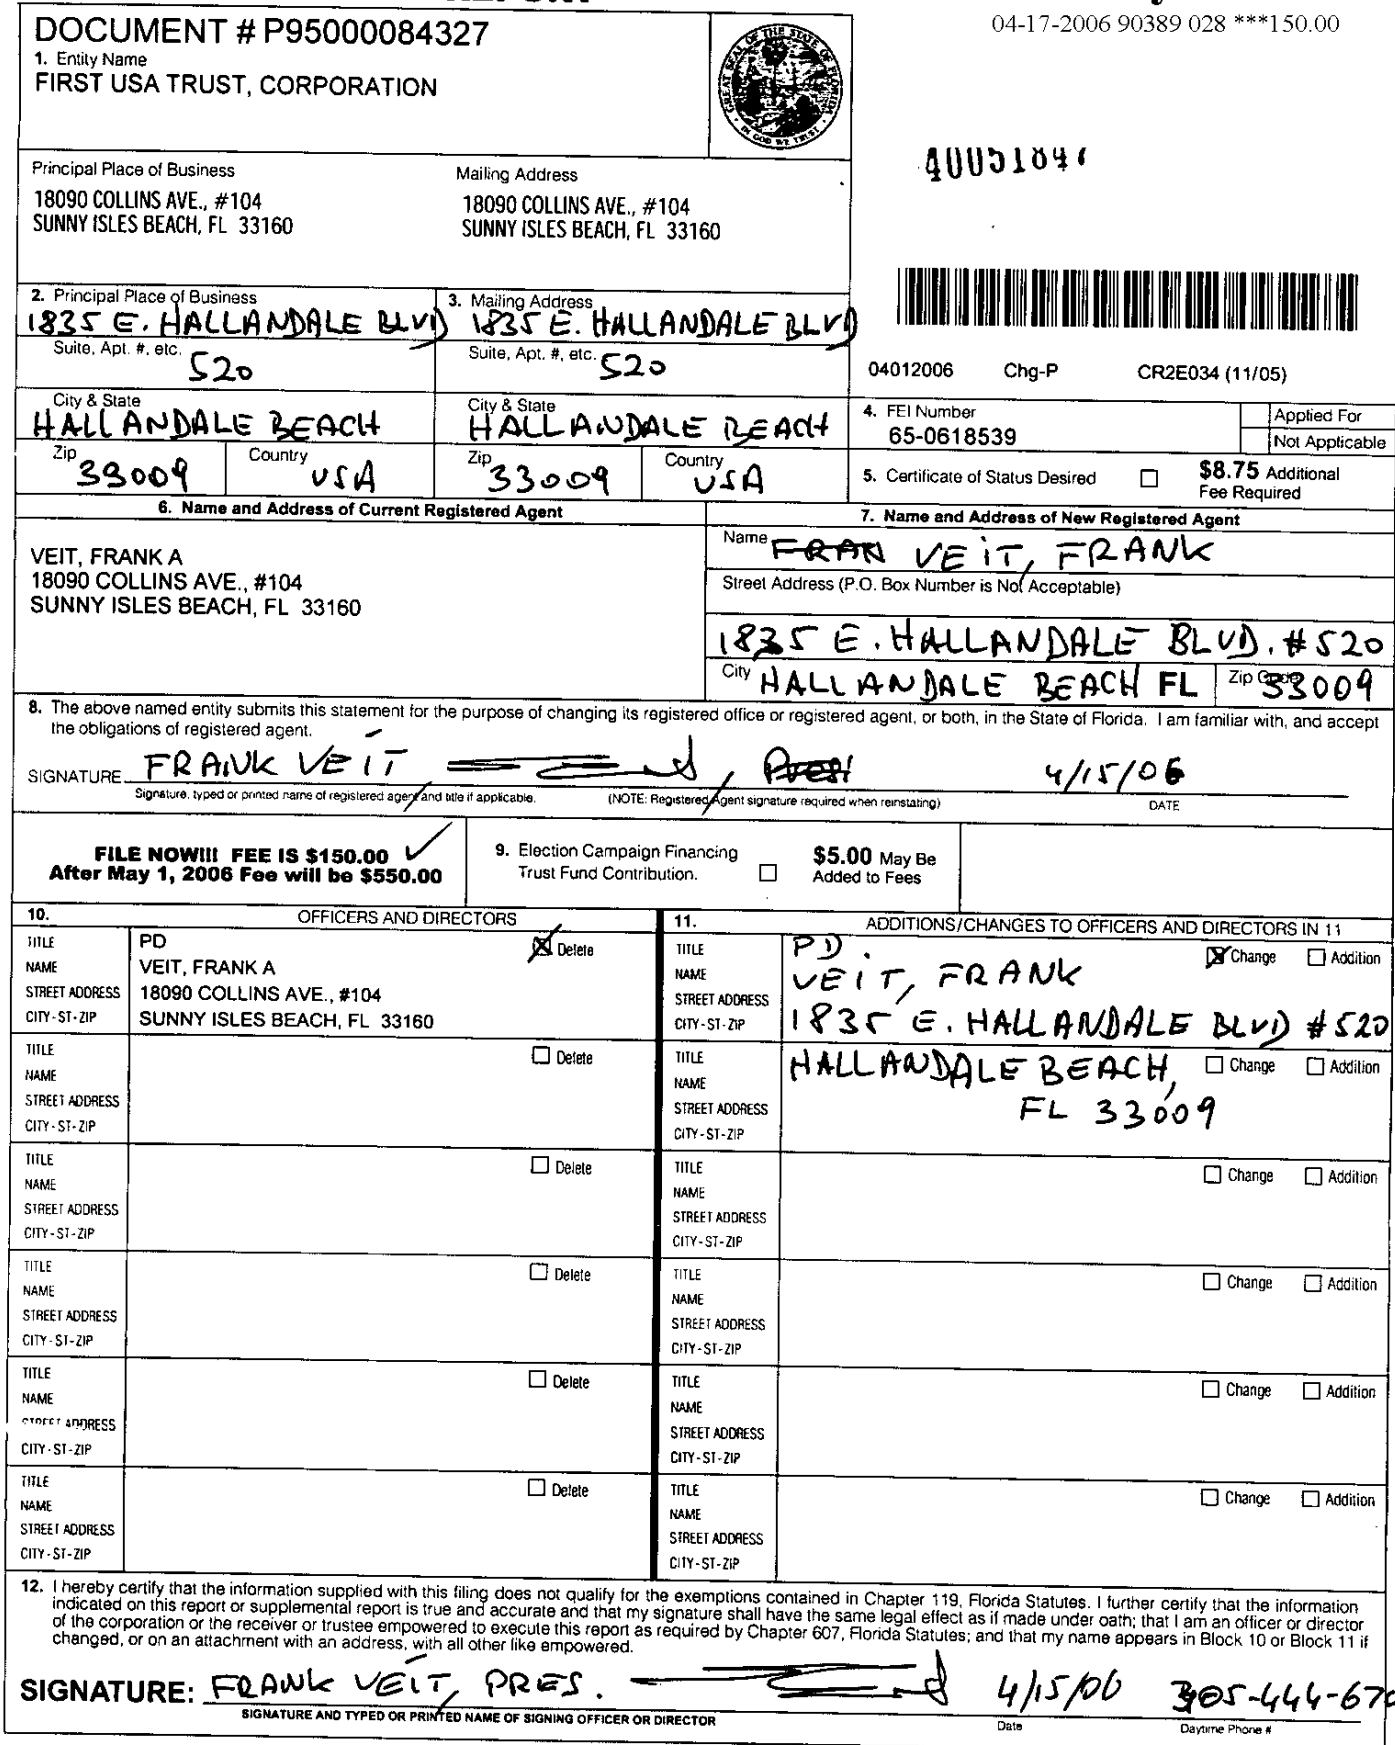 04-17-2006 90389 028 ***150.00
DOCUMENT # P95000084327
1. Entity Name
FIRST USA TRUST, CORPORATION
GREAT SEAL OF THE STATE OF FLORIDA
IN GOD WE TRUST
Principal Place of Business
18090 COLLINS AVE., #104
SUNNY ISLES BEACH, FL 33160
Mailing Address
18090 COLLINS AVE., #104
SUNNY ISLES BEACH, FL 33160
2. Principal Place of Business
1835 E. HALLANDALE BLVD
Suite, Apt. #, etc.
520
City & State
HALLANDALE BEACH
Zip
33009
Country
USA
3. Mailing Address
1835 E. HALLANDALE BLVD
Suite, Apt. #, etc.
520
City & State
HALLANDALE BEACH
Zip
33009
Country
USA
04012006 Chg-P CR2E034 (11/05)
4. FEI Number
65-0618539
Applied For
Not Applicable
5. Certificate of Status Desired
$8.75 Additional
Fee Required
6. Name and Address of Current Registered Agent
VEIT, FRANK A
18090 COLLINS AVE., #104
SUNNY ISLES BEACH, FL 33160
7. Name and Address of New Registered Agent
Name FRAN VEIT, FRANK
Street Address (P.O. Box Number is Not Acceptable)
1835 E. HALLANDALE BLVD. #520
City HALLANDALE BEACH FL Zip Code 33009
8. The above named entity submits this statement for the purpose of changing its registered office or registered agent, or both, in the State of Florida. I am familiar with, and accept
the obligations of registered agent.
SIGNATURE FRANK VEIT , Pres. 4/15/06
Signature, typed or printed name of registered agent and title if applicable. (NOTE: Registered Agent signature required when reinstating) DATE
FILE NOW!!! FEE IS $150.00
After May 1, 2006 Fee will be $550.00
9. Election Campaign Financing
Trust Fund Contribution.
$5.00 May Be
Added to Fees
10. OFFICERS AND DIRECTORS
TITLE PD Delete
NAME VEIT, FRANK A
STREET ADDRESS 18090 COLLINS AVE., #104
CITY-ST-ZIP SUNNY ISLES BEACH, FL 33160
TITLE Delete
NAME
STREET ADDRESS
CITY-ST-ZIP
TITLE Delete
NAME
STREET ADDRESS
CITY-ST-ZIP
TITLE Delete
NAME
STREET ADDRESS
CITY-ST-ZIP
TITLE Delete
NAME
STREET ADDRESS
CITY-ST-ZIP
TITLE Delete
NAME
STREET ADDRESS
CITY-ST-ZIP
11. ADDITIONS/CHANGES TO OFFICERS AND DIRECTORS IN 11
TITLE PD. Change Addition
NAME VEIT, FRANK
STREET ADDRESS
CITY-ST-ZIP 1835 E. HALLANDALE BLVD #520
TITLE HALLANDALE BEACH, Change Addition
NAME
STREET ADDRESS FL 33009
CITY-ST-ZIP
TITLE Change Addition
NAME
STREET ADDRESS
CITY-ST-ZIP
TITLE Change Addition
NAME
STREET ADDRESS
CITY-ST-ZIP
TITLE Change Addition
NAME
STREET ADDRESS
CITY-ST-ZIP
TITLE Change Addition
NAME
STREET ADDRESS
CITY-ST-ZIP
12. I hereby certify that the information supplied with this filing does not qualify for the exemptions contained in Chapter 119, Florida Statutes. I further certify that the information
indicated on this report or supplemental report is true and accurate and that my signature shall have the same legal effect as if made under oath; that I am an officer or director
of the corporation or the receiver or trustee empowered to execute this report as required by Chapter 607, Florida Statutes; and that my name appears in Block 10 or Block 11 if
changed, or on an attachment with an address, with all other like empowered.
SIGNATURE: FRANK VEIT, PRES. 4/15/06 305-444-670
SIGNATURE AND TYPED OR PRINTED NAME OF SIGNING OFFICER OR DIRECTOR Date Daytime Phone #